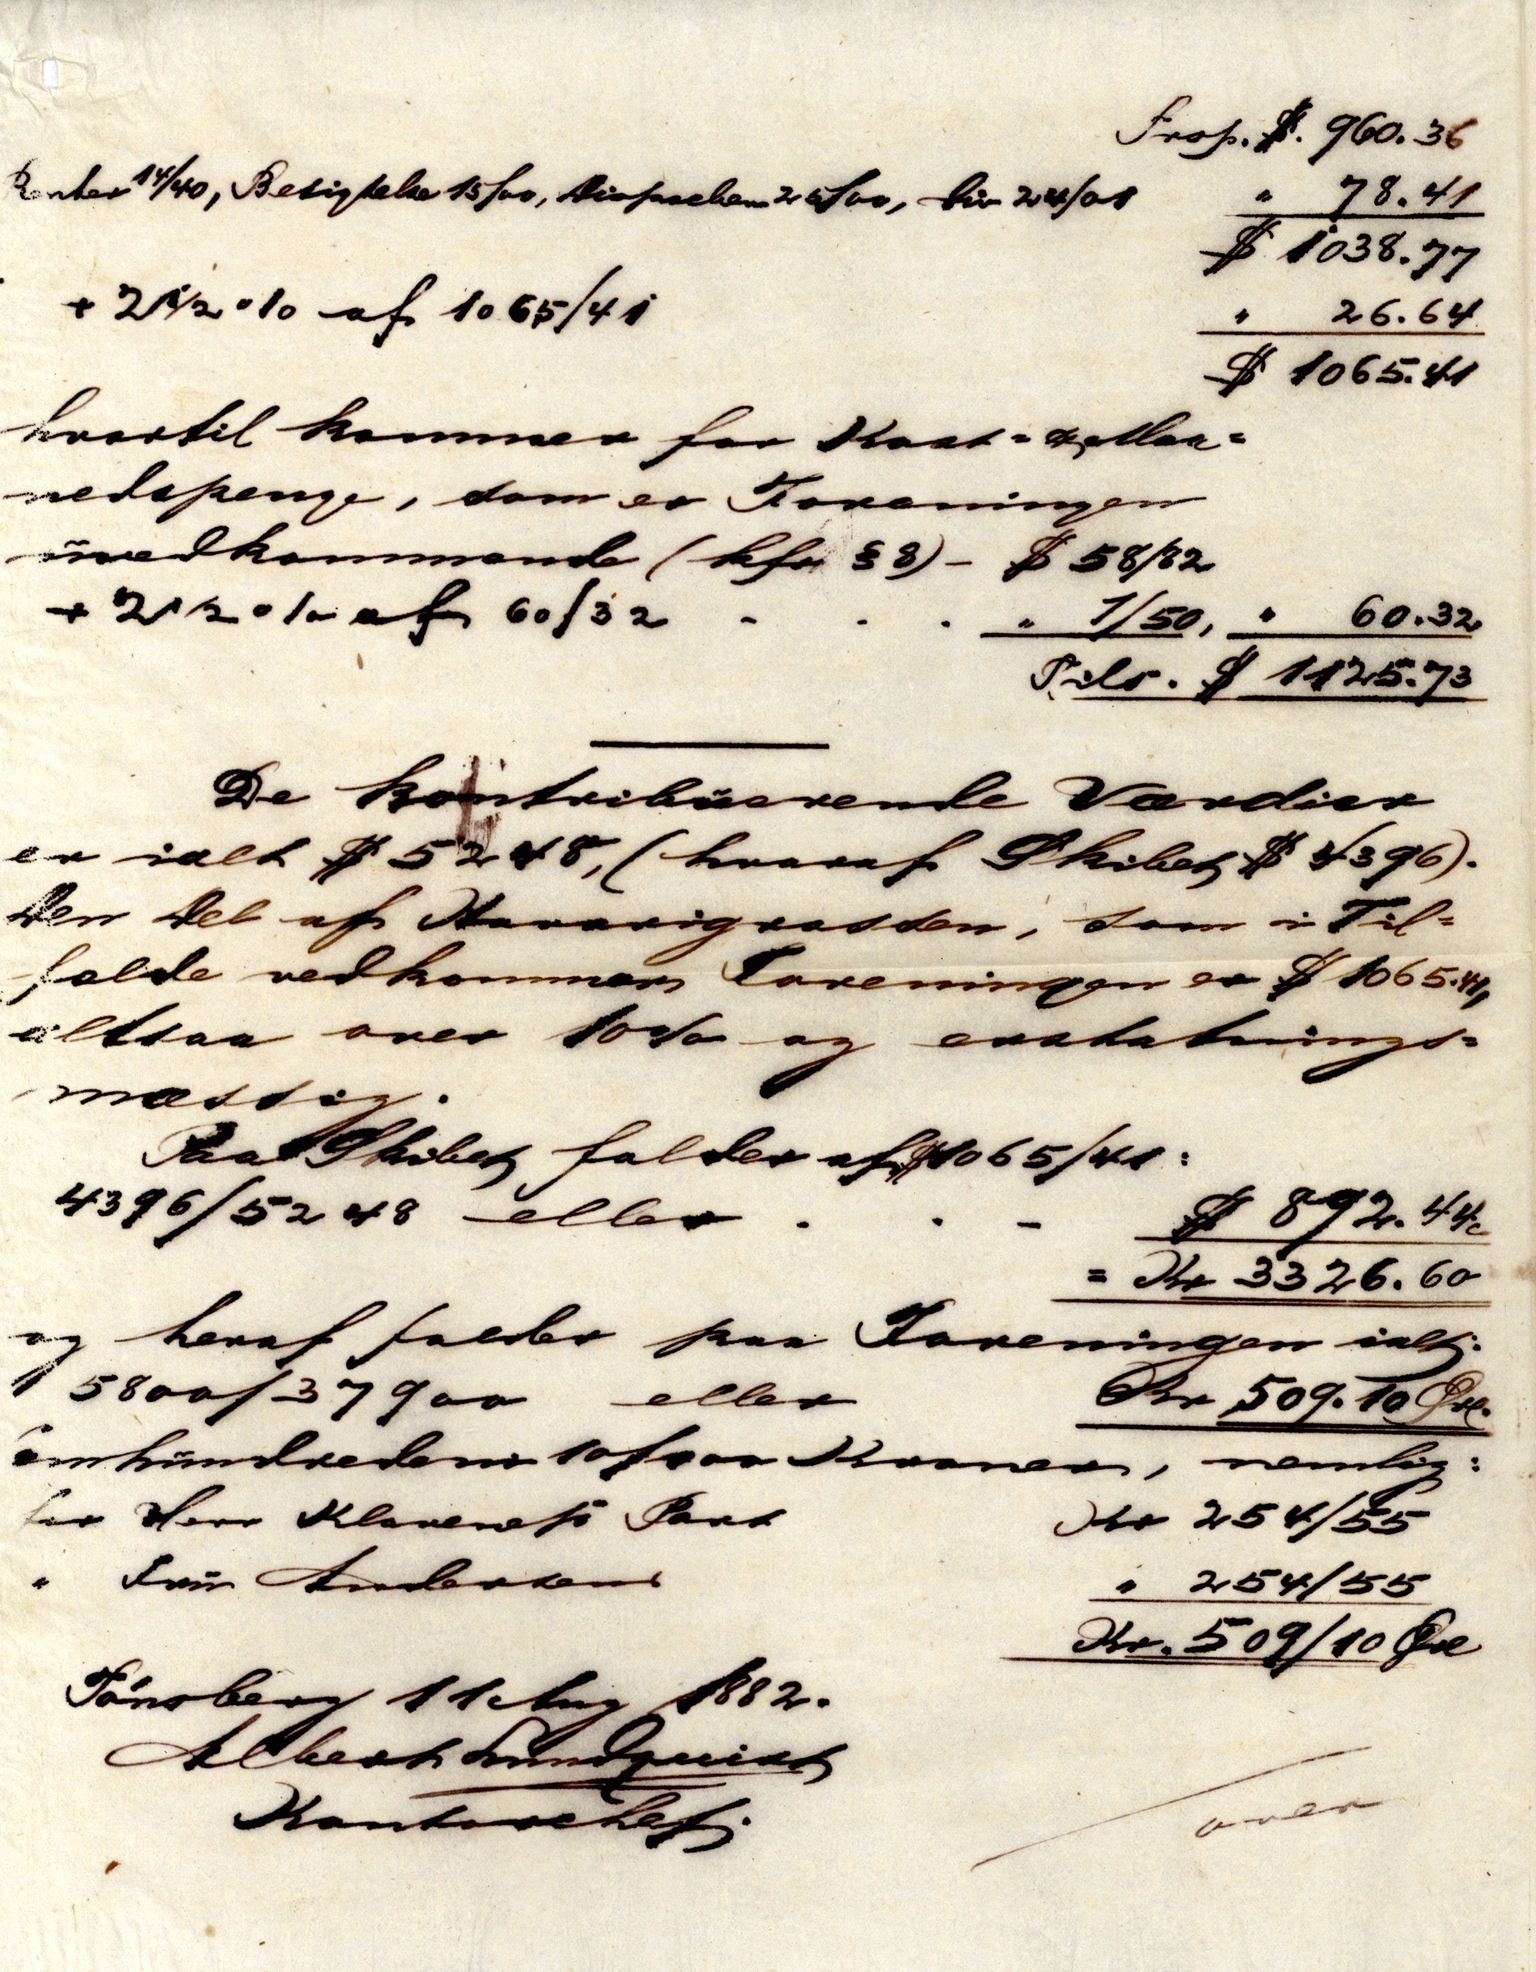 Trsp. $. 960.36
Renter 14/40, Besigtelse 15/00, Dispachen 25/00, Div 24/01 " 78.41
$ 1038.77
+ 2 1/2 % af 1065/41 " 26.64
$ 1065.41
hvortil kommer for Kost= & Maa=
nedspenge, som er Foreningen
üvedkommende (kfr §8) – $ 58/82
+ 2 1/2 % af 60/32 . . . " 1/50, " 60.32
Tils. $ 1125.73
De kontribüerende Værdier
er ialt $ 5248, (hvoraf Skibet $ 4396).
Den Del af Havarigrossen, som i Til=
fælde vedkommer Foreningen er $ 1065.41,
altsaa over 10% og erstatnings=
mæssig.
Paa Skibet falder af $ 1065/41:
4396/5248 eller . . – $ 892.44c
= Kr 3326.60
og heraf falder paa Foreningen ialt:
5800/37900 eller Kr 509.10 Øre.
femhündredeni 10/100 Kroner, nemlig:
for Herr Klavenefs Part Kr 254/55
" Frü Andersens " 254/55
Kr. 509/10 Øre
Tönsberg 11 Aug 1882.
Albert Lundquist
Kontorchef.
over